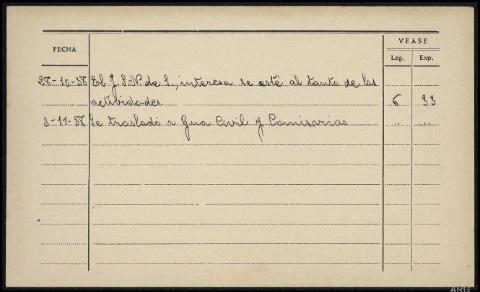 VEASE
FECHA
Leg. Exp.
28-10-58 El J. S. N. de S., interesa se esté al tanto de las
actividades 6 33
3-11-58 Se trasladó a Gua Civil y Comisarias " "
ARG